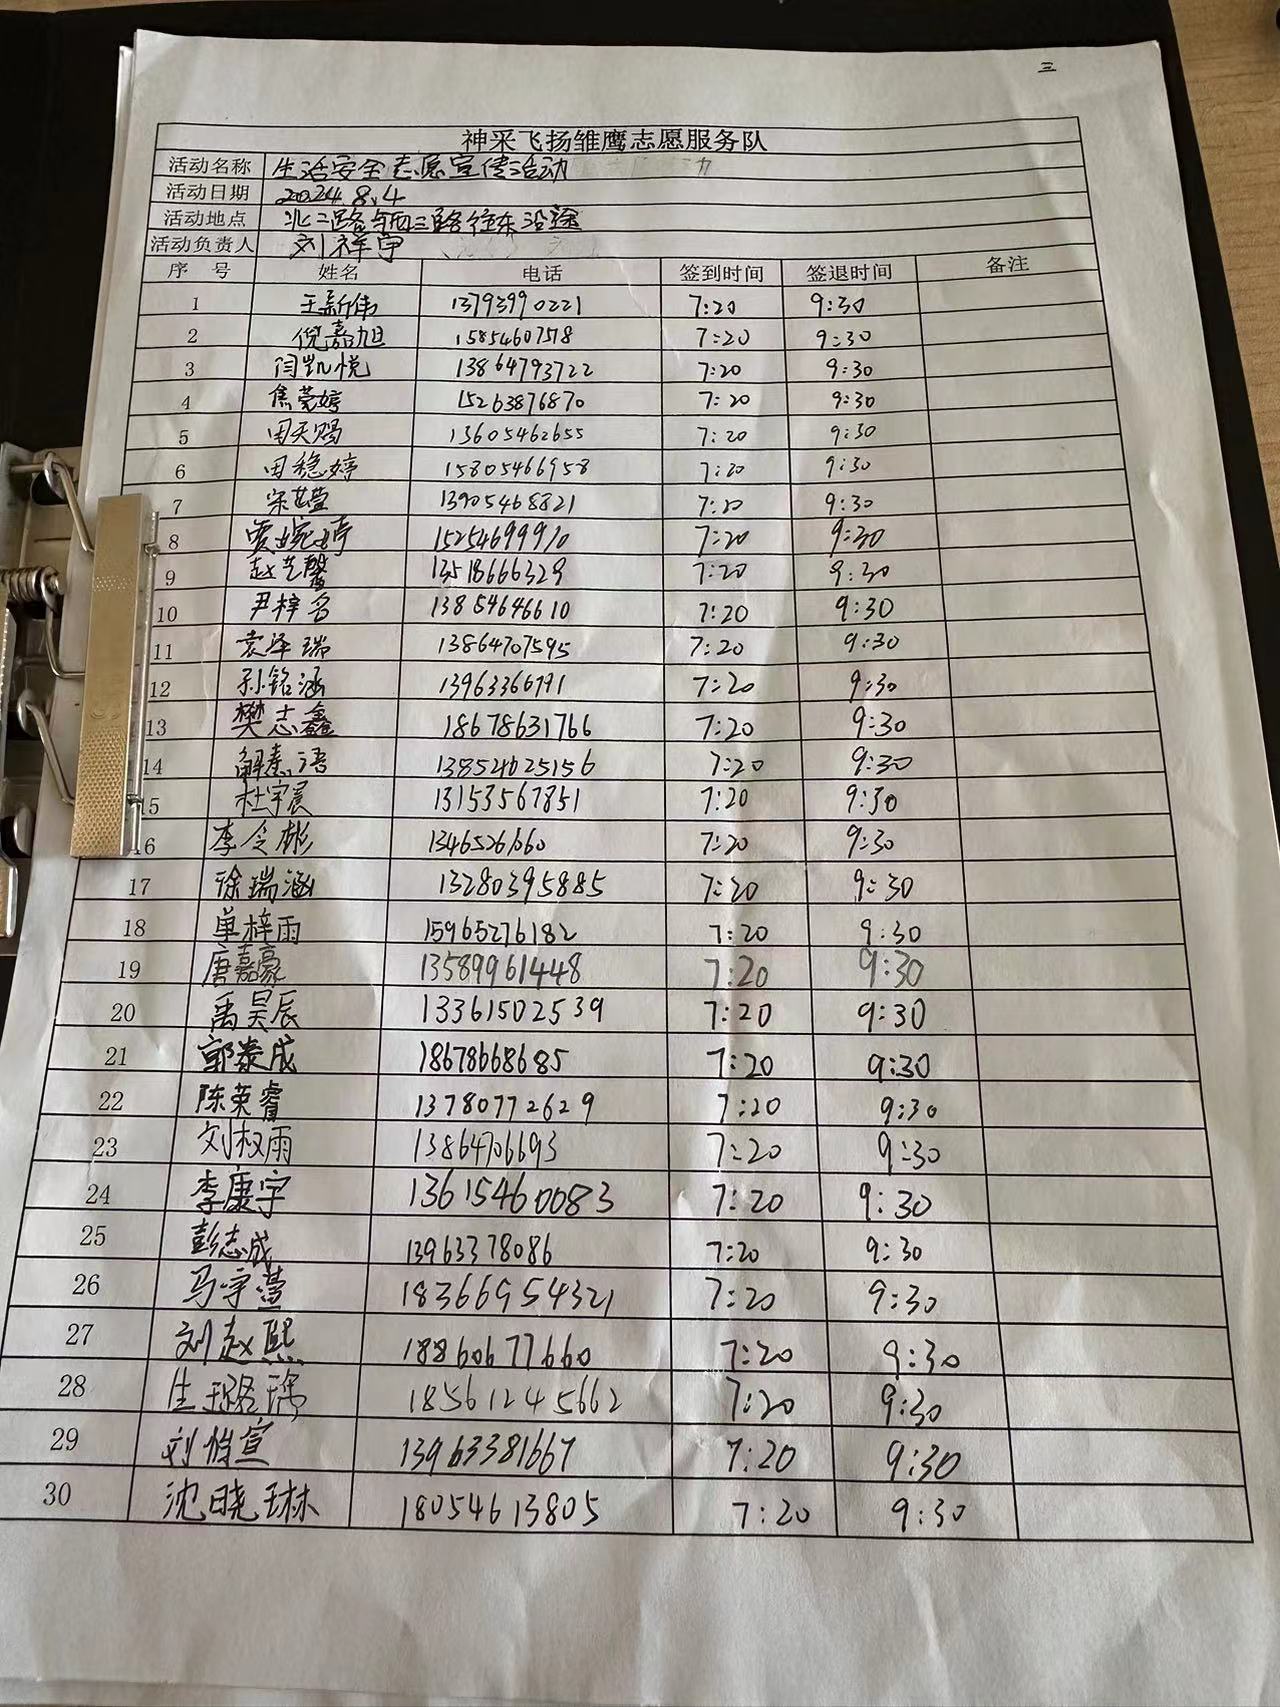 三
神采飞扬雏鹰志愿服务队
活动名称 生活安全志愿宣传活动
活动日期 2024.8.4
活动地点 北二路与西三路往东沿途
活动负责人 刘祥宇
序 号 姓名 电话 签到时间 签退时间 备注
1 王新伟 13793990221 7:20 9:30
2 倪嘉旭 15854607578 7:20 9:30
3 闫凯悦 13864793722 7:20 9:30
4 焦莞婷 15263876870 7:20 9:30
5 田天赐 13605462655 7:20 9:30
6 田稳婷 15805466958 7:20 9:30
7 宋芷莹 13905468821 7:20 9:30
8 贾婉婷 15254699910 7:20 9:30
9 赵艺馨 13518666329 7:20 9:30
10 尹梓名 13854646610 7:20 9:30
11 袁泽瑞 13864707595 7:20 9:30
12 孙铭涵 7:20 9:30
13 樊志鑫 18678631766 7:20 9:30
14 解熹语 13854625156 7:20 9:30
15 杜宇晨 13153567851 7:20 9:30
16 李令彬 7:20 9:30
17 徐瑞涵 13280395885 7:20 9:30
18 单梓雨 15965276182 7:20 9:30
19 唐嘉豪 13589961448 7:20 9:30
20 禹昊辰 13361502539 7:20 9:30
21 郭泰成 18678668685 7:20 9:30
22 陈荣睿 13780772629 7:20 9:30
23 刘权雨 13864706693 7:20 9:30
24 李康宇 13615460083 7:20 9:30
25 彭志成 13963378086 7:20 9:30
26 马宇萱 18366954321 7:20 9:30
27 刘赵熙 18860677660 7:20 9:30
28 生璐瑀 18561245662 7:20 9:30
29 刘怡宣 13963381667 7:20 9:30
30 沈晓琳 18054613805 7:20 9:30